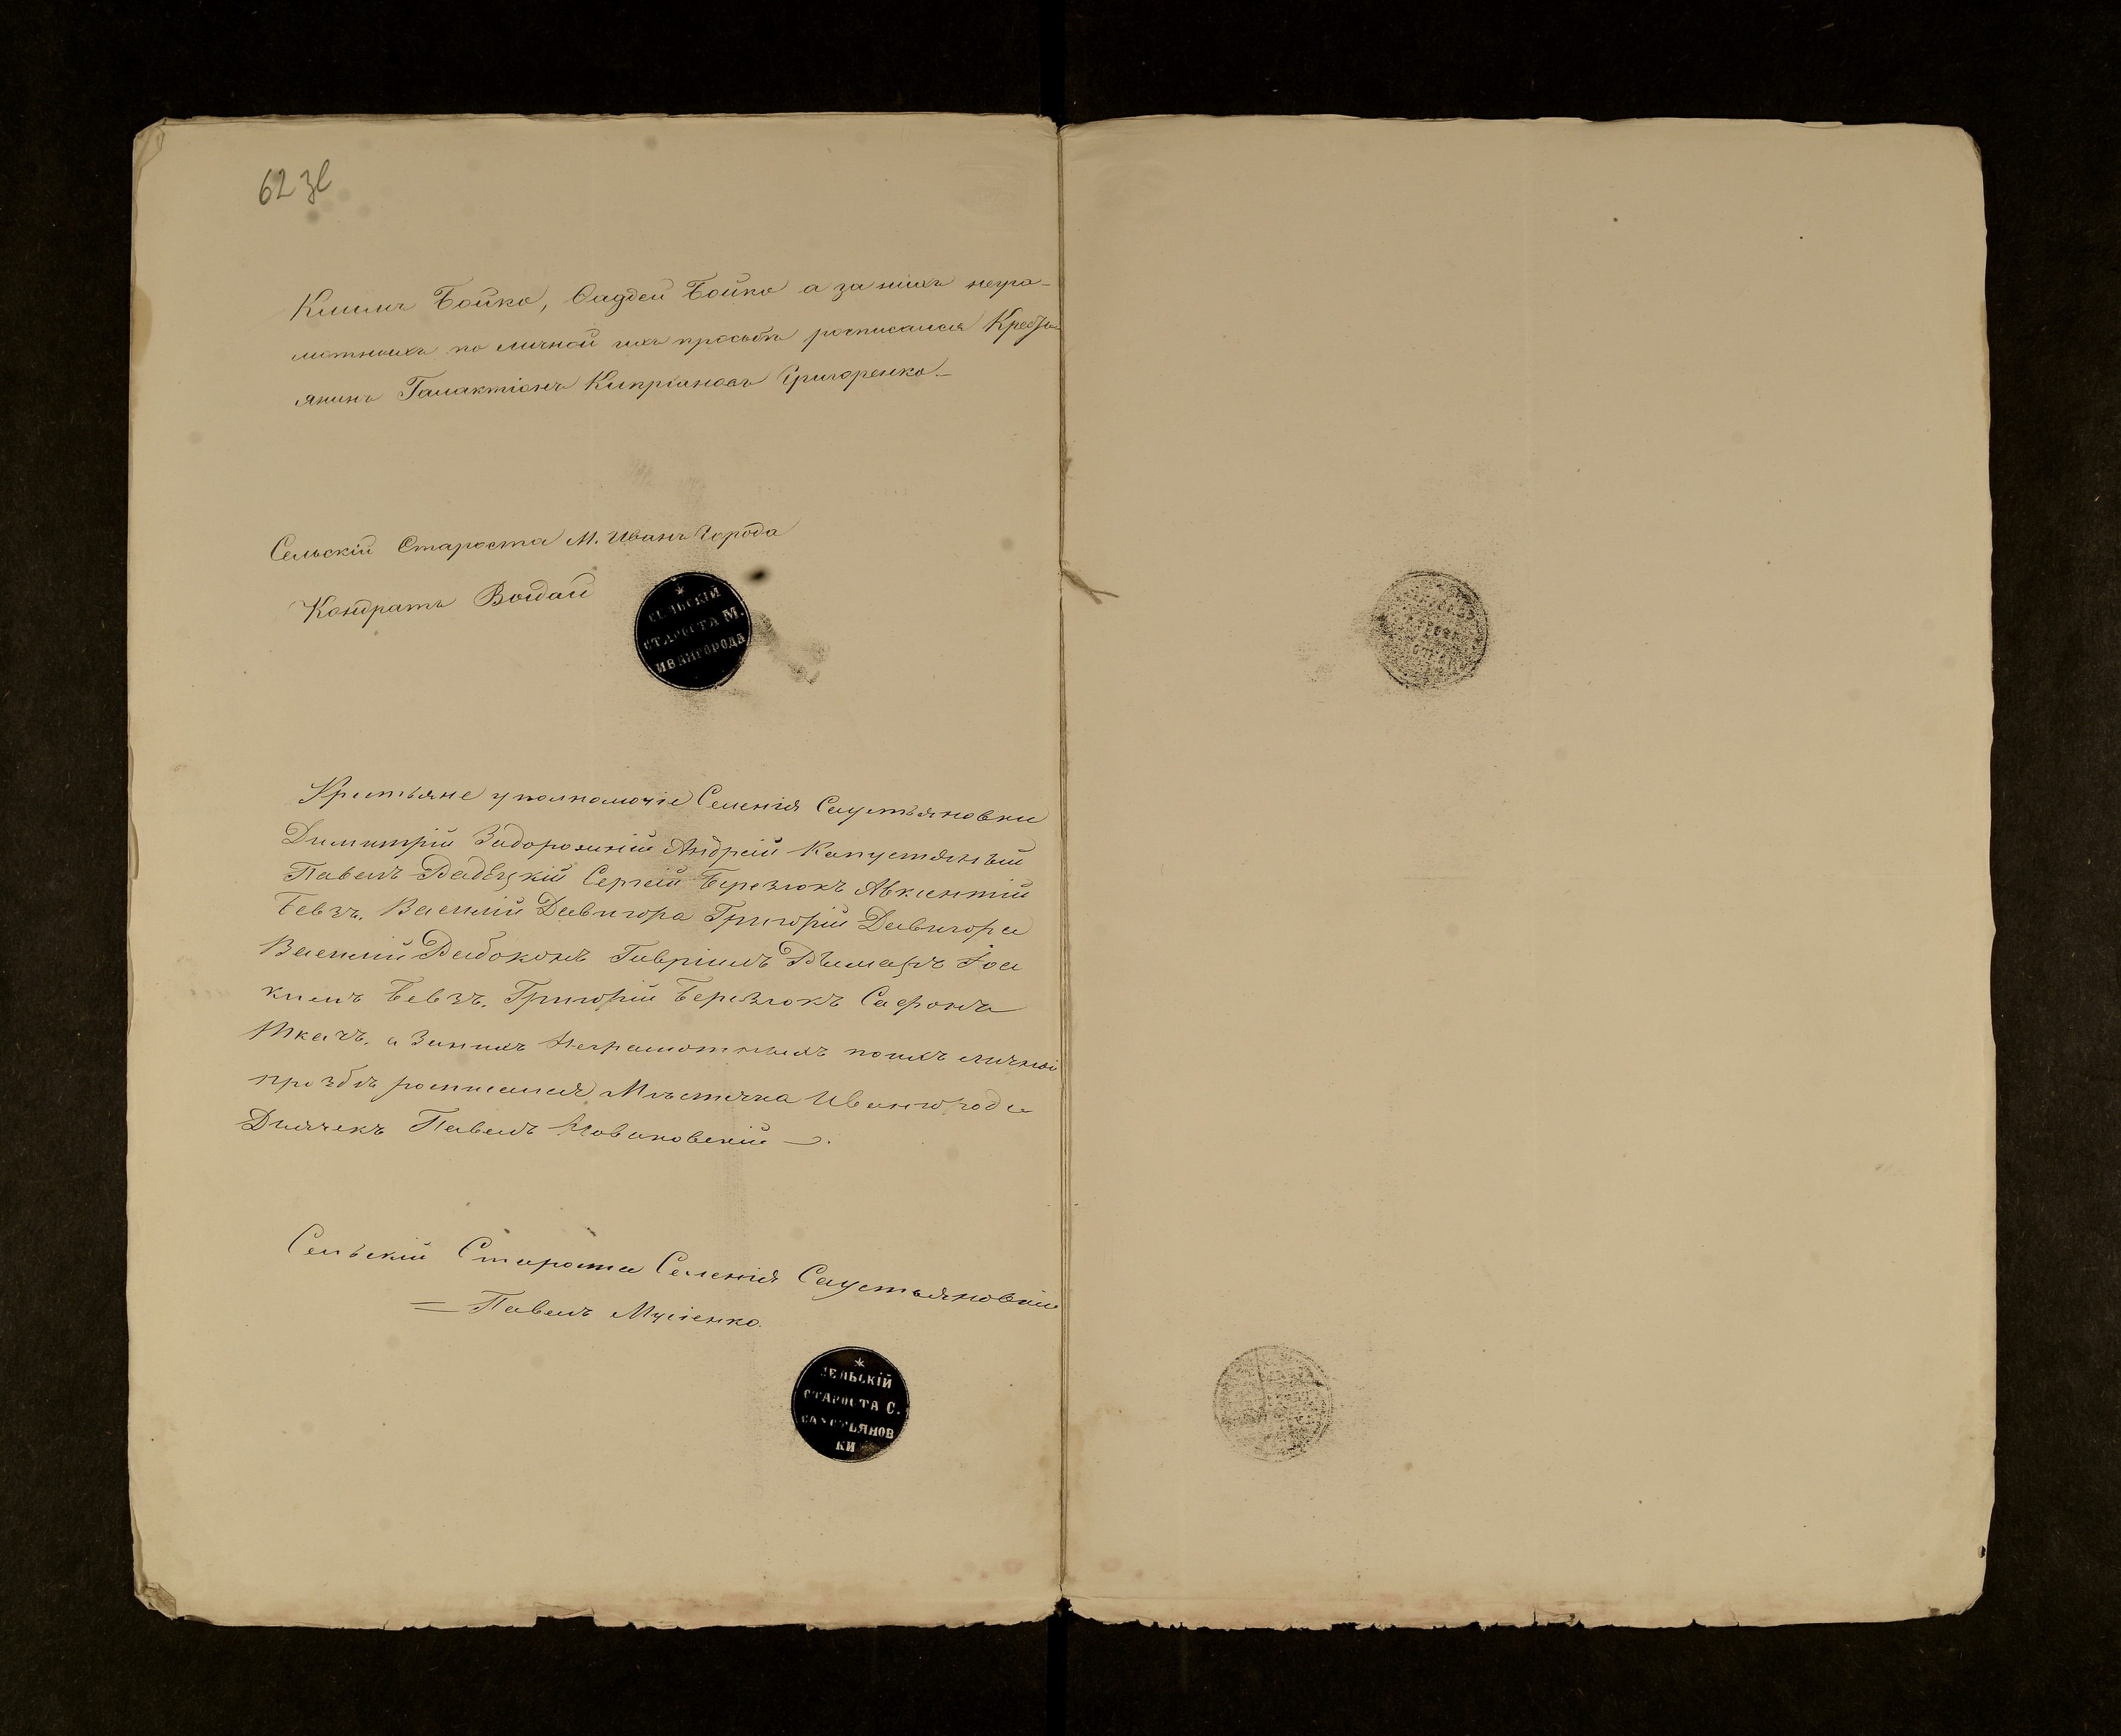 62 зв
Климъ Бойко, Фаддей Бойко а за нихъ негра-
мотныхъ по личной ихъ просьбѣ росписался Кресть-
янинъ Галактіонъ Кипріановъ Григоренко.-
Сельскій Староста М. Иванъ Города
Кондратъ Войдай
СЕЛЬСКІЙ
СТАРОСТА М.
ИВАНГОРОДА
Кристьяне уполномочіе Селенія Саустьяновки
Димитрій Задорожній Андрей Капустяный
Павелъ Вадѣцкій Сергій Березюкъ Авксентій
Бевзъ. Василій Давигора Григорій Давигора
Василій Рабоконъ Гавріилъ Іоа
кимъ Бевзъ. Григорій Березюкъ Сафонъ
Ткачъ. а Занихъ Неграмотныхъ поихъ личной
прозбѣ росписался Мѣстечка Ивангорода
Дьячекъ Павелъ Новаковскій —.
Селъскій Староста Селенія Саустьяновки
= Павелъ Мусіенко.
СЕЛЬСКІЙ
СТАРОСТА С.
САУСТЬЯНОВ
КИ